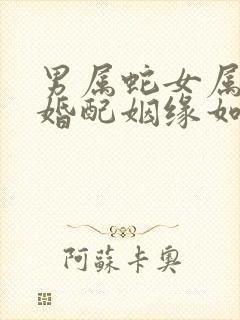 男属蛇女属
婚配姻缘如
阿蘇卡奥